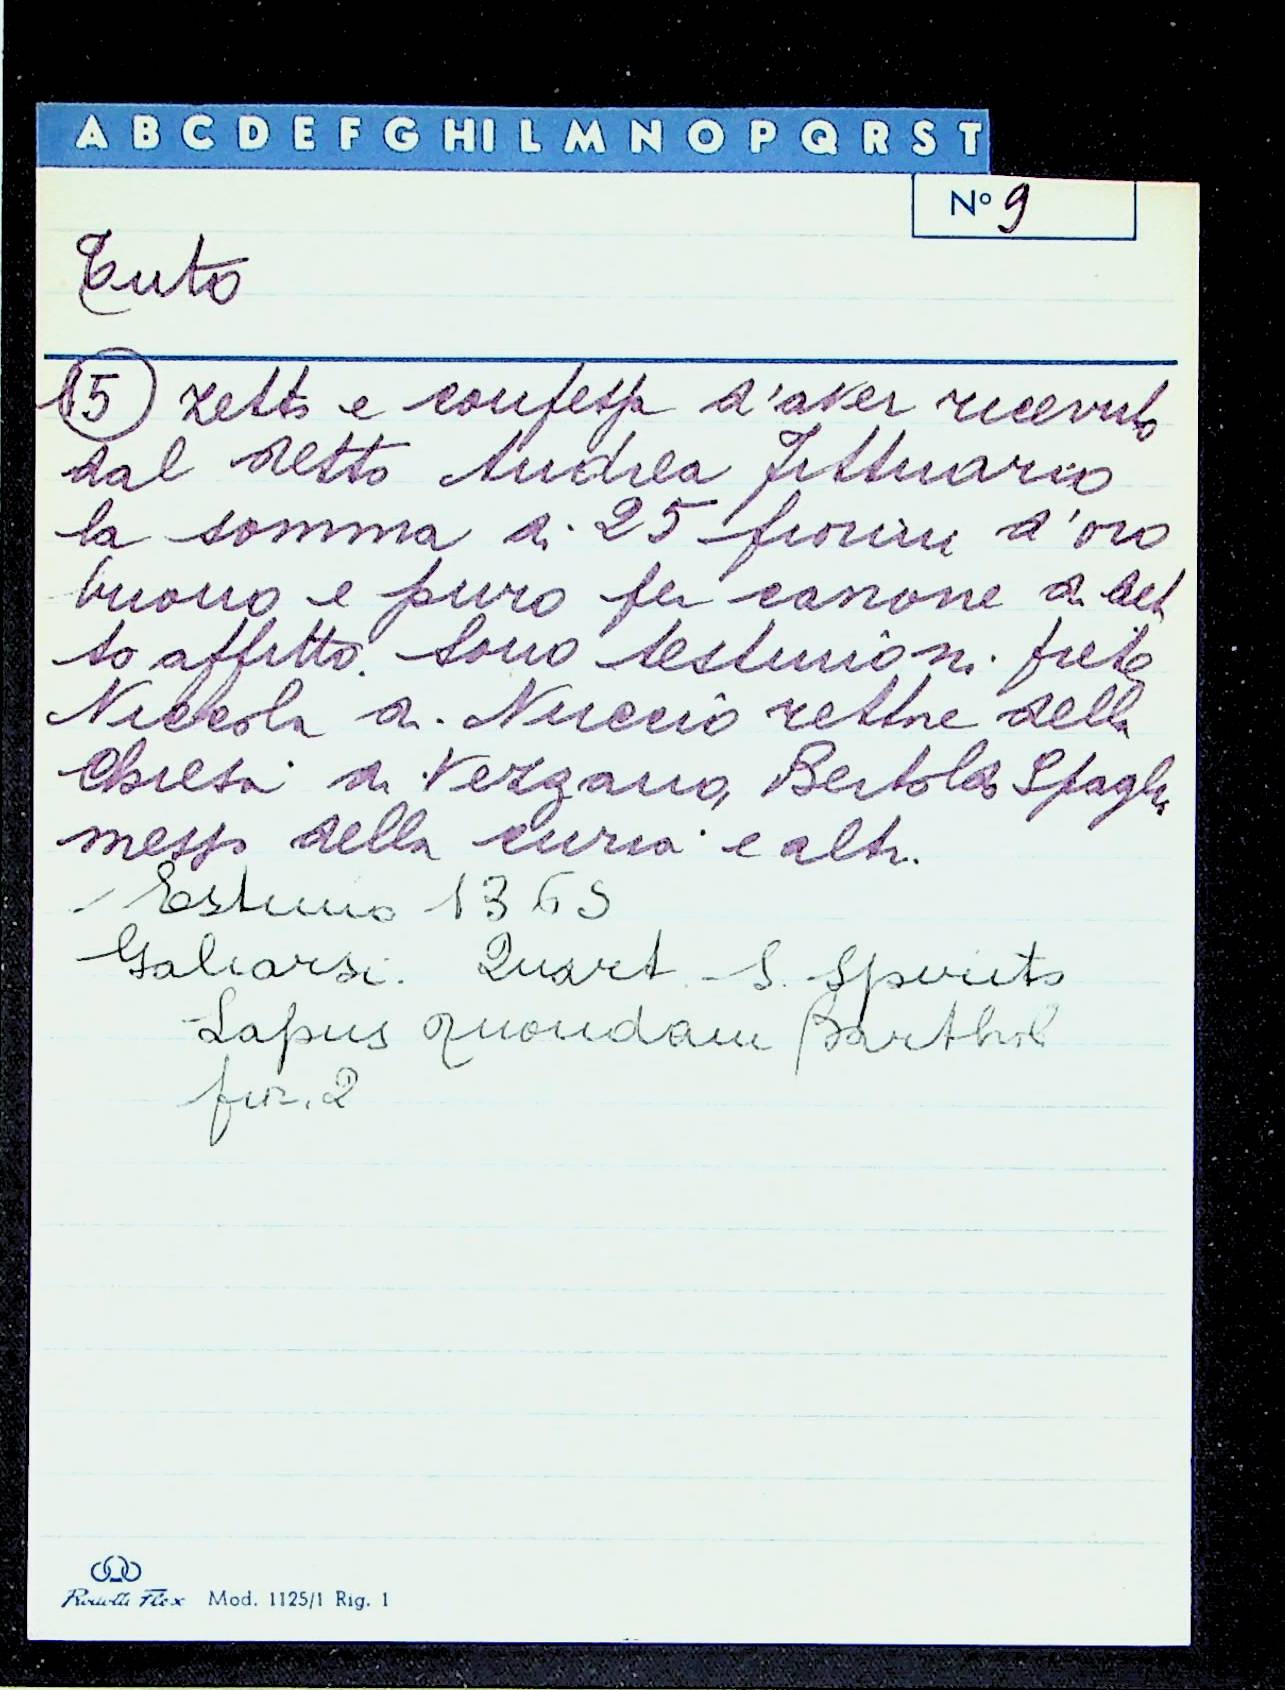 A B C D E F G HI L M N O P Q R S T
N° 9
Tuto
15 retto e confessa d'aver ricevuto
dal detto Andrea fittuario
la somma di 25 fiorini d'oro
buono e puro per canone di det
to affitto. Sono testimoni. prete
Niccola di Nuccio rettore della
Chiesa di Vezzano, Bertoldo
messo della curia e altri.
Estimo 1363
Quart. S. Spirito
Lapus quondam Barthol
fior. 2
Mod. 1125/1 Rig. 1